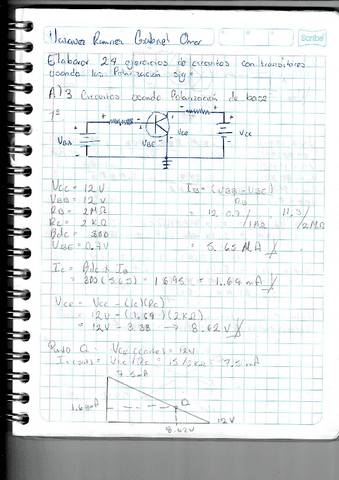 Ramirez Gabriel Omar
Elaborar 24 ejercicios de circuitos con transistores
usando las Polarización sig
A) 3 Circuitos usando Polarización de base
1º
VBB VCE VCC
VBE
VCC = 12V
VBB = 12V
RB = 2MΩ
RC = 2KΩ
Bdc = 300
VBE = 0.7V
IB = (VBB - VBE) / RB
11.3 / 2MΩ
= 5.65 MA
IC = Bdc x IB
= 300 (5.65) = 1.695 = 1.69 mA
VCE = VCC - (IC)(RC)
= 12V - (1.69)(2KΩ)
= 12V - 3.38 → 8.62V
Punto Q = VCE (corte) = 12V
VCC / RC = 15 / 2KΩ = 7.5 mA
7.5mA
1.69mA Q
8.62V 12V